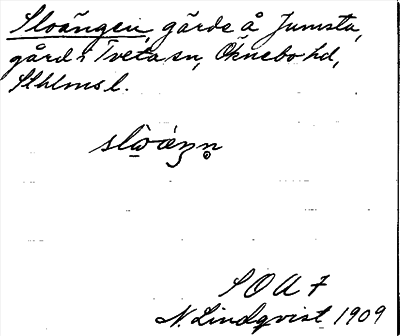 Sloängen, gärde å Jumsta,
gård i Tveta sn, Öknebo hd,
Sthlms l.
S O A 7
N. Lindqvist 1909